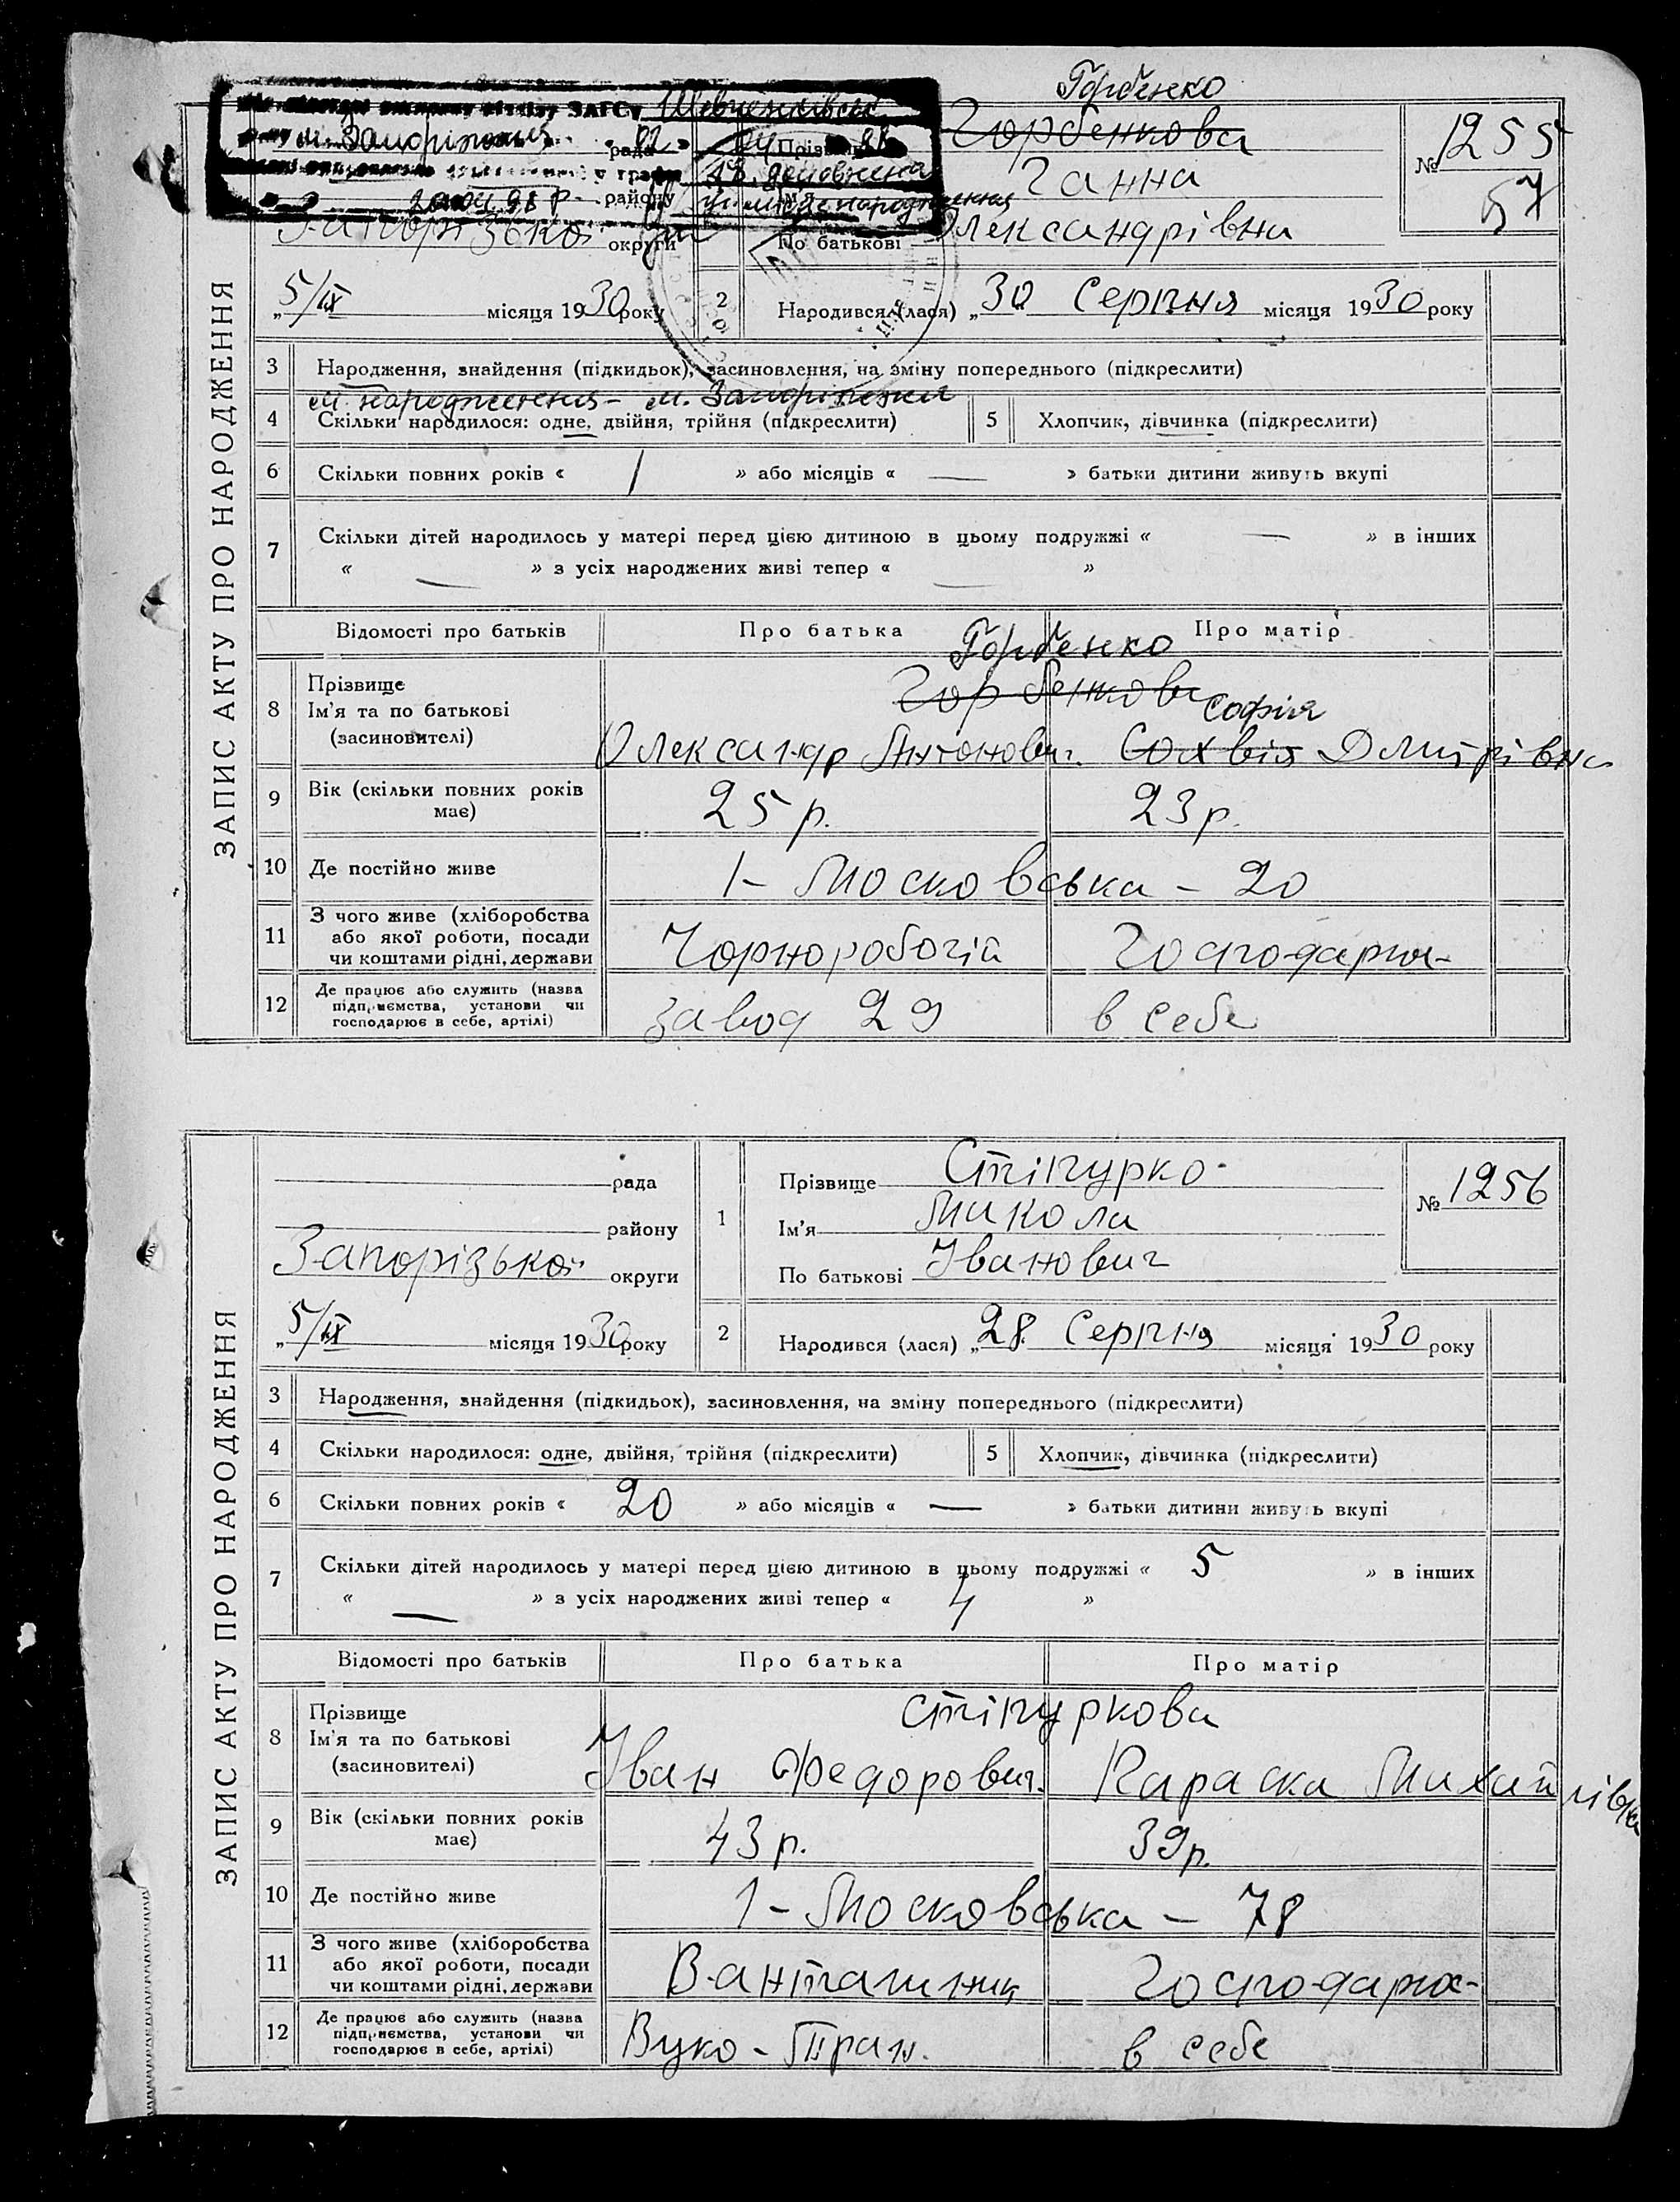 Горбенко
ЗАГСу Шевченківськ
м. Запоріжжя
рада
Прізвище Горбенкова
№ 1255
57
Ганна
району
Запорізької округи
По батькові Олександрівна
„5/ІХ місяця 1930 року
2 Народився (лася) „30 Серпня місяця 1930 року
ЗАПИС АКТУ ПРО НАРОДЖЕННЯ
3 Народження, знайдення (підкидьок), засиновлення, на зміну попереднього (підкреслити)
м. народження – м. Запоріжжя
4 Скільки народилося: одне, двійня, трійня (підкреслити) 5 Хлопчик, дівчинка (підкреслити)
6 Скільки повних років « 1 » або місяців « — » батьки дитини живуть вкупі
7 Скільки дітей народилось у матері перед цією дитиною в цьому подружжі « — » в інших
« — » з усіх народжених живі тепер « — »
Відомості про батьків Про батька Про матір
Горбенко
8 Прізвище Горбенкови
Ім'я та по батькові Софія
(засиновителі) Олександр Антонович. Сохвія Дмитрівна
9 Вік (скільки повних років має) 25 р. 23 р.
10 Де постійно живе 1 – Московська – 20
11 З чого живе (хліборобства
або якої роботи, посади Чорноробочій Господарка
чи коштами рідні, держави
12 Де працює або служить (назва
підприємства, установи чи завод 29 в себе
господарює в себе, артілі)
рада
1 Прізвище Стіпурко
№ 1256
району
Ім'я Микола
Запорізької округи
По батькові Іванович
„5/ІХ місяця 1930 року
2 Народився (лася) „28 Серпня місяця 1930 року
ЗАПИС АКТУ ПРО НАРОДЖЕННЯ
3 Народження, знайдення (підкидьок), засиновлення, на зміну попереднього (підкреслити)
4 Скільки народилося: одне, двійня, трійня (підкреслити) 5 Хлопчик, дівчинка (підкреслити)
6 Скільки повних років « 20 » або місяців « — » батьки дитини живуть вкупі
7 Скільки дітей народилось у матері перед цією дитиною в цьому подружжі « 5 » в інших
« — » з усіх народжених живі тепер « 4 »
Відомості про батьків Про батька Про матір
8 Прізвище Стіпуркови
Ім'я та по батькові
(засиновителі) Іван Федорович. Параска Михайлівна
9 Вік (скільки повних років має) 43 р. 39 р.
10 Де постійно живе 1 – Московська – 78
11 З чого живе (хліборобства
або якої роботи, посади Вантажник Господарка
чи коштами рідні, держави
12 Де працює або служить (назва
підприємства, установи чи Вуко – Тран. в себе
господарює в себе, артілі)